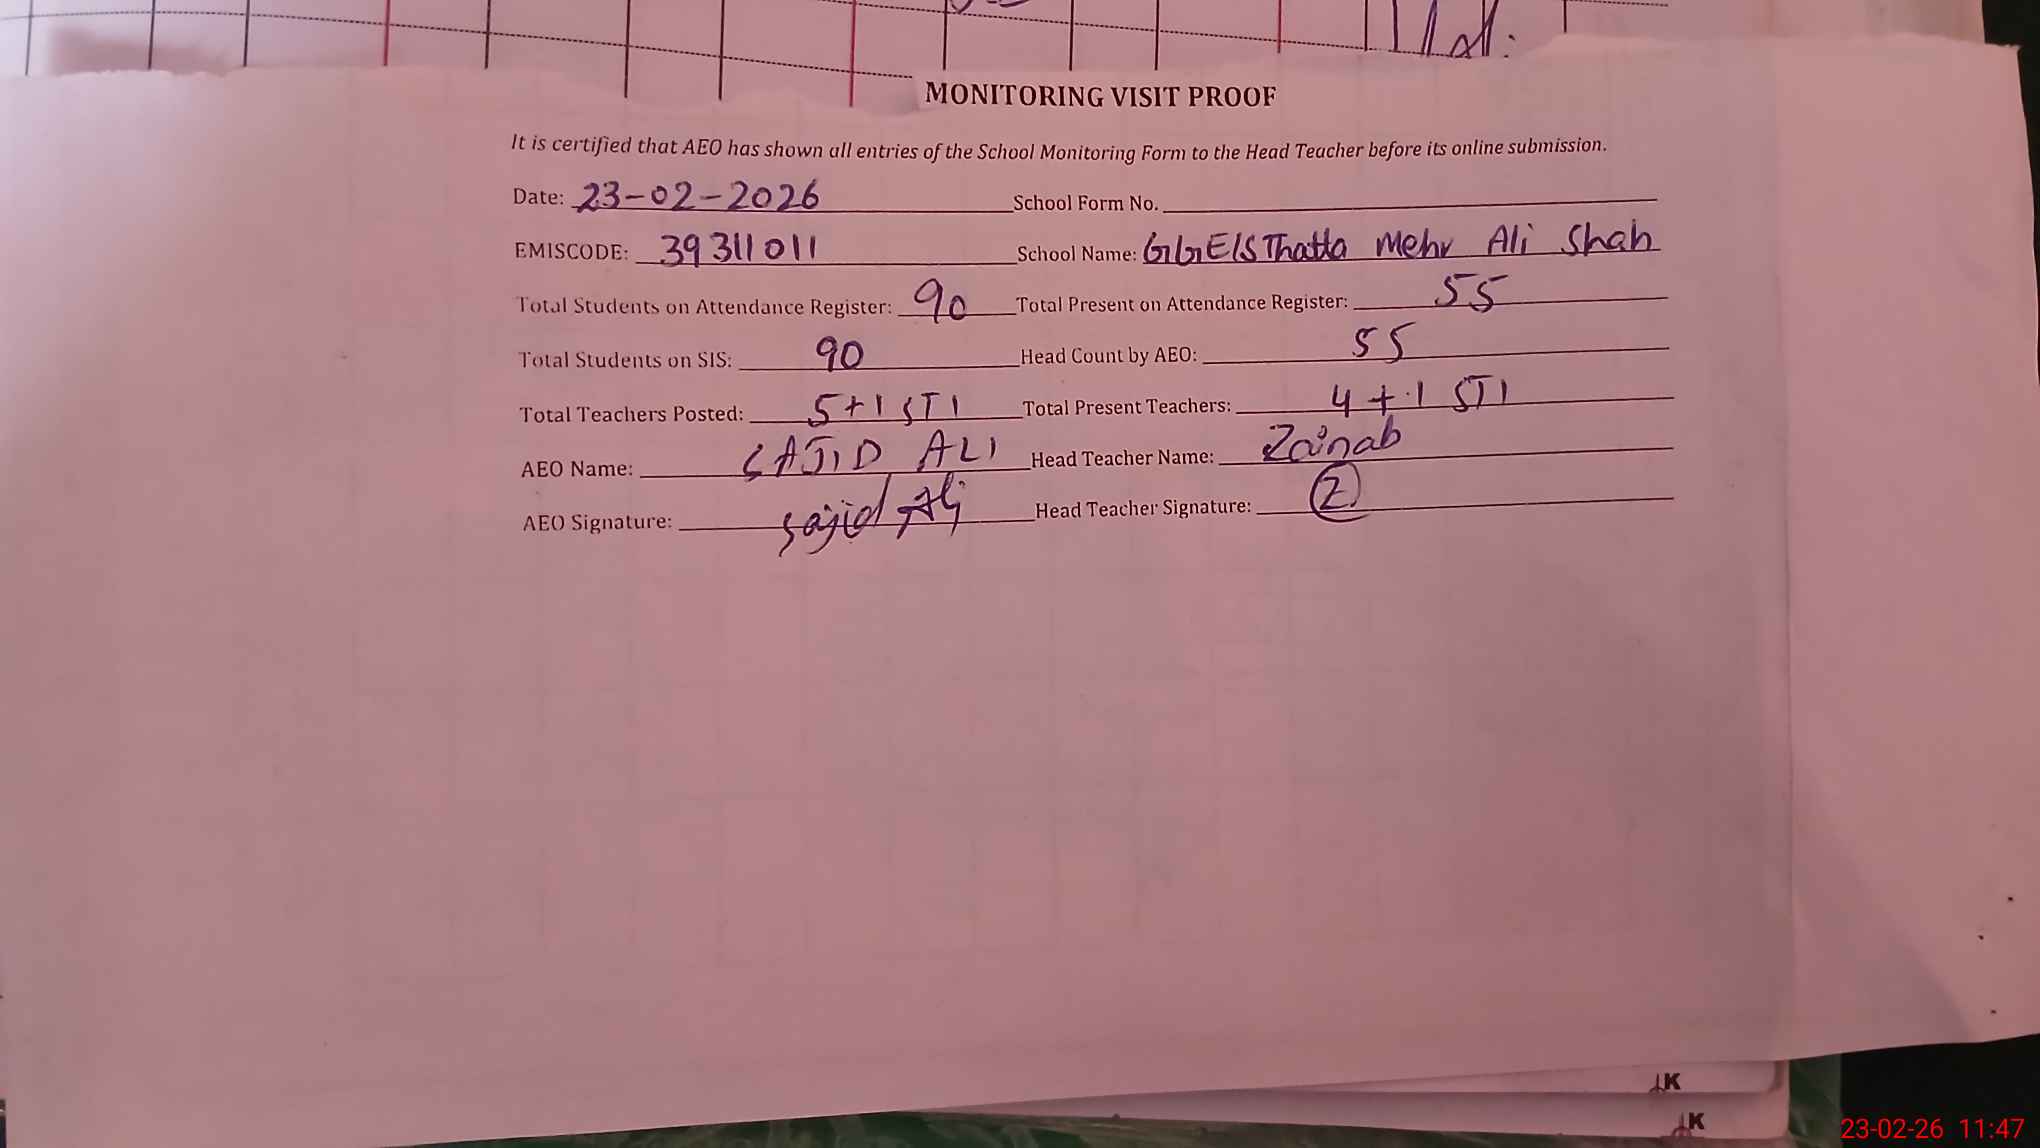 MONITORING VISIT PROOF
It is certified that AEO has shown all entries of the School Monitoring Form to the Head Teacher before its online submission.
Date: 23-02-2026 School Form No.
EMISCODE: 39311011 School Name: GGE/S Thatta Mehr Ali Shah
Total Students on Attendance Register: 90 Total Present on Attendance Register: 55
Total Students on SIS: 90 Head Count by AEO: 55
Total Teachers Posted: 5+1 STI Total Present Teachers: 4+1 STI
AEO Name: SAJID ALI Head Teacher Name: Zainab
AEO Signature: Sajid Ali Head Teacher Signature: Z
K
K
23-02-26 11:47